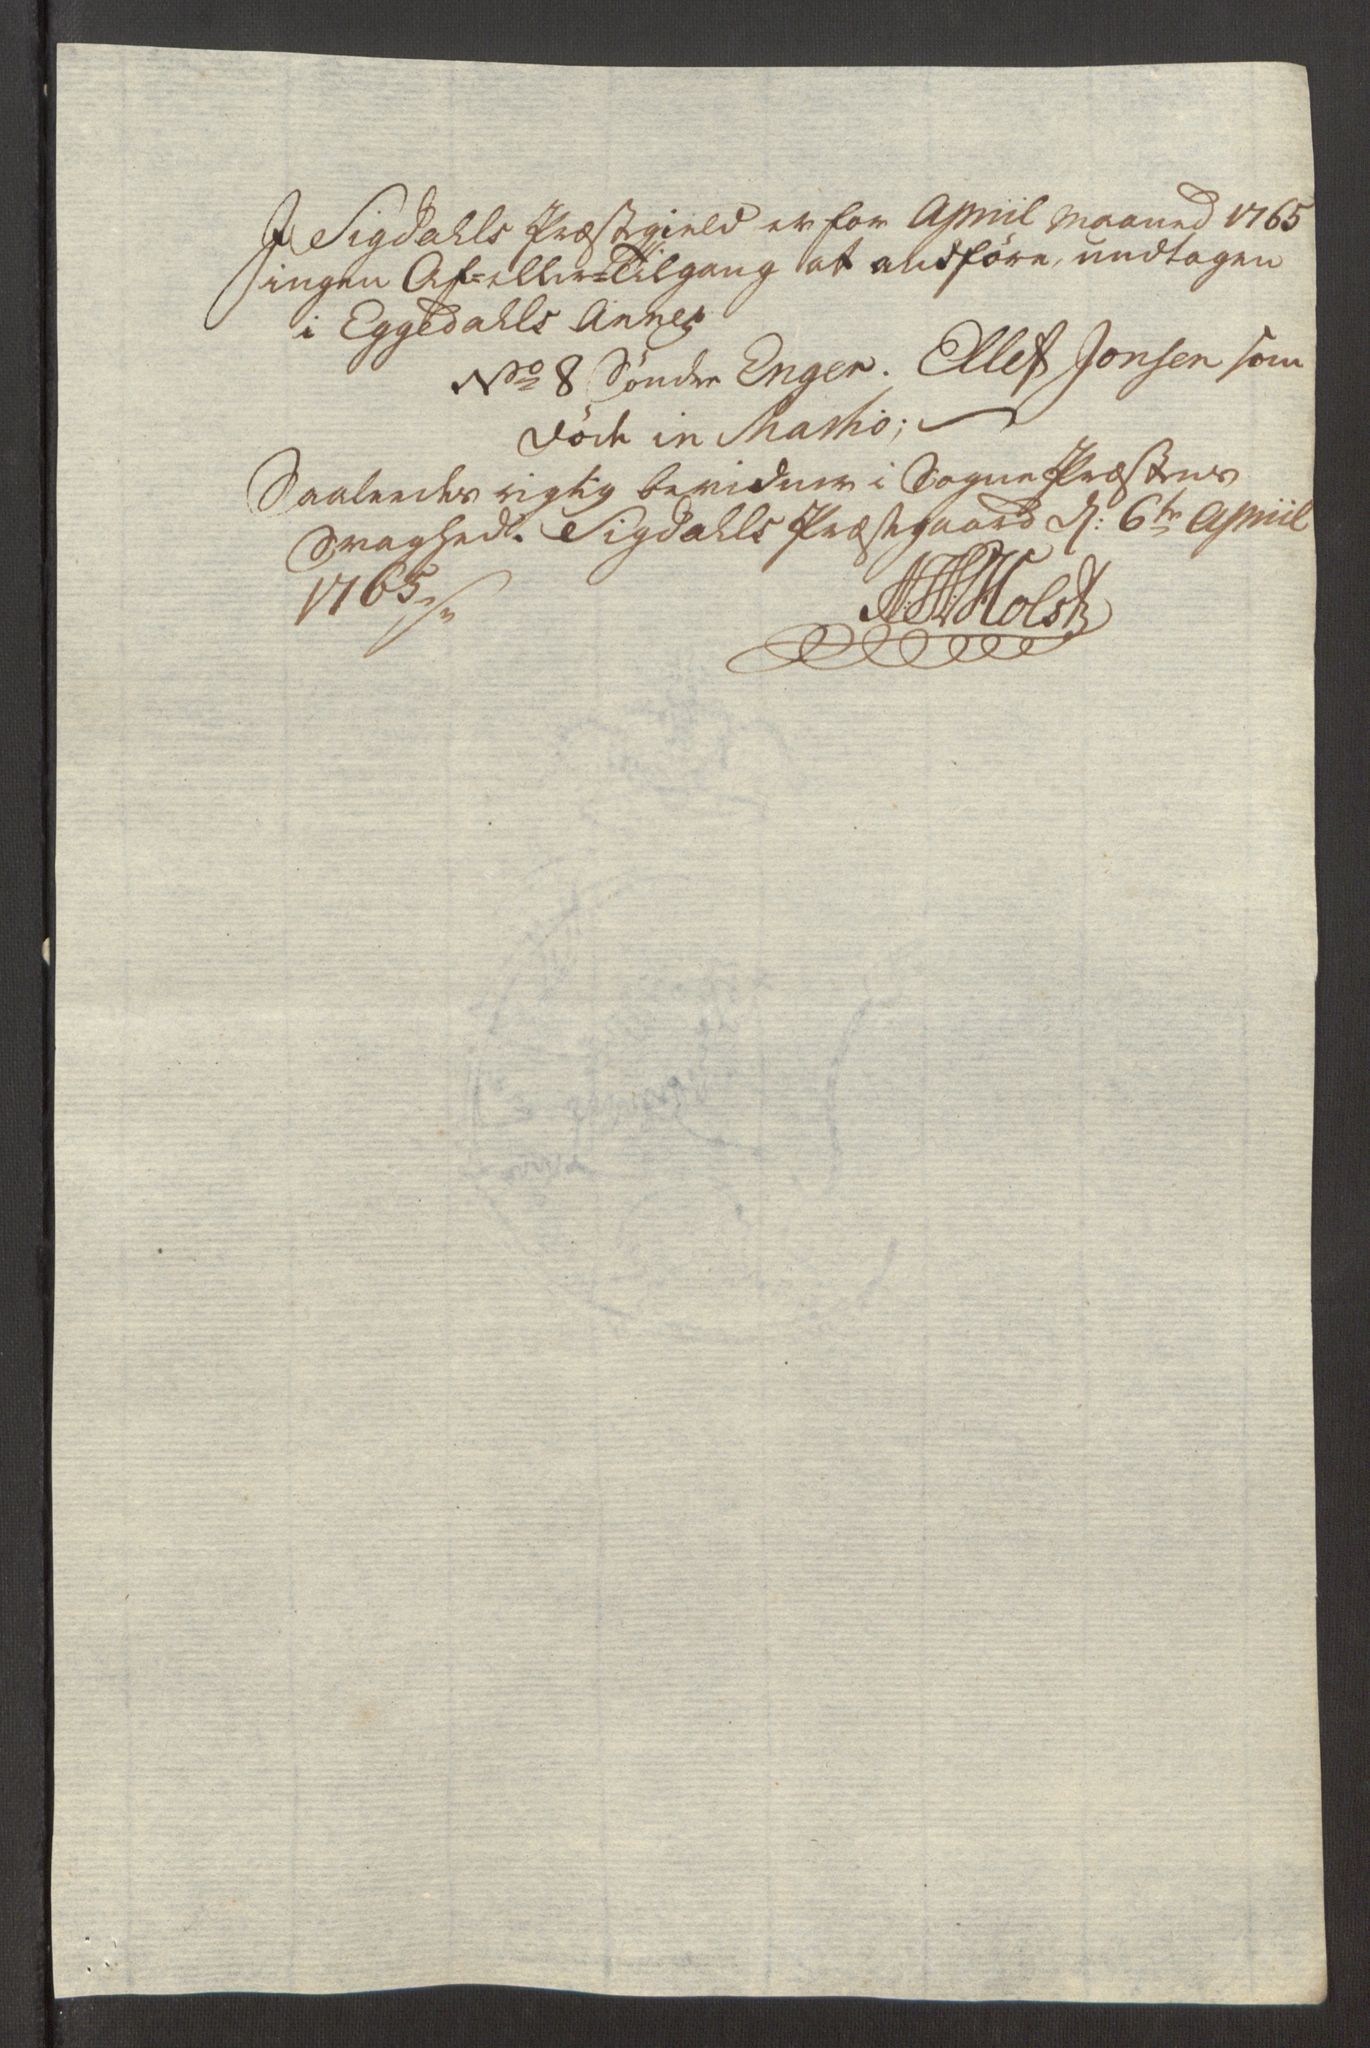 I Sigdahls Præstegield er for April Maaned 1765
ingen Af- eller Tilgang at andføre, undtagen
i Eggedahls Annex
No 8 Søndre Enger. Ellef Jonsen som
døde in Martio;
Saaledes rigtig bevidner i Sogne Præstens
Svaghed. Sigdahls Præstegaard d: 6te April
1765
Holst